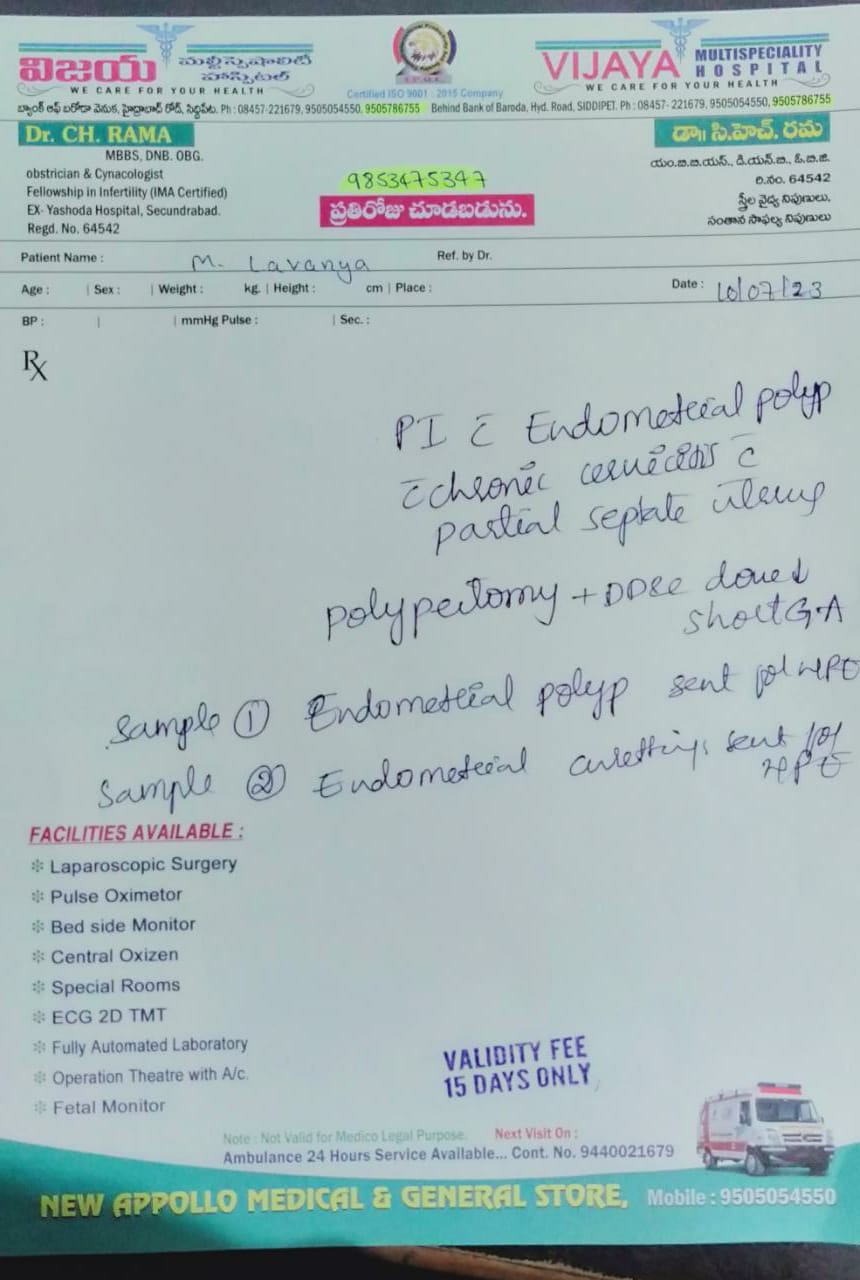 విజయ మల్టీస్పెషాలిటీ హాస్పిటల్
WE CARE FOR YOUR HEALTH
Certified ISO 9001 : 2015 Company
VIJAYA MULTISPECIALITY HOSPITAL
WE CARE FOR YOUR HEALTH
బ్యాంక్ ఆఫ్ బరోడా వెనుక, హైద్రాబాద్ రోడ్, సిద్దిపేట. Ph : 08457-221679, 9505054550, 9505786755 Behind Bank of Baroda, Hyd. Road, SIDDIPET. Ph : 08457- 221679, 9505054550, 9505786755
Dr. CH. RAMA
MBBS, DNB. OBG.
obstrician & Cynacologist
Fellowship in Infertility (IMA Certified)
EX- Yashoda Hospital, Secundrabad.
Regd. No. 64542
9853475347
ప్రతిరోజు చూడబడును.
డా॥ సి.హెచ్. రమ
యం.బి.బి.యస్., డి.యన్.బి., ఓ.బి.జి.
రి.నం. 64542
స్త్రీల వైద్య నిపుణులు,
సంతాన సాఫల్య నిపుణులు
Patient Name : M. Lavanya Ref. by Dr.
Age : | Sex : | Weight : kg. | Height : cm | Place : Date : 10/07/23
BP : | | mmHg Pulse : | Sec. :
Rx
PI c̄ Endometrial polyp
c̄ chronic cervicitis c̄
partial septate uterus
polypectomy + DD&C done
short G.A
Sample ① Endometrial polyp sent for HPE
Sample ② Endometrial curettings sent for
HPE
FACILITIES AVAILABLE :
❇ Laparoscopic Surgery
❇ Pulse Oximetor
❇ Bed side Monitor
❇ Central Oxizen
❇ Special Rooms
❇ ECG 2D TMT
❇ Fully Automated Laboratory
❇ Operation Theatre with A/c.
❇ Fetal Monitor
VALIDITY FEE
15 DAYS ONLY
Note : Not Valid for Medico Legal Purpose. Next Visit On :
Ambulance 24 Hours Service Available... Cont. No. 9440021679
NEW APPOLLO MEDICAL & GENERAL STORE, Mobile : 9505054550